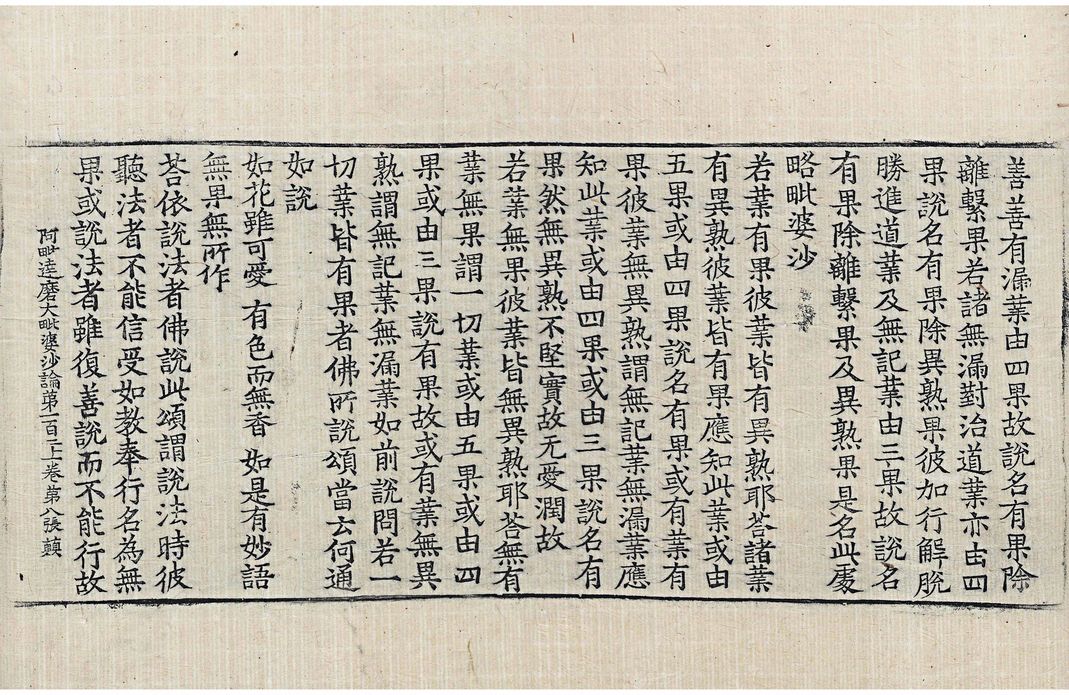 善善有漏業由四果故說名有果除
離繫果若諸無漏對治道業亦由四
果說名有果除異熟果彼加行解脫
勝進道業及無記業由三果故說名
有果除離繫果及異熟果是名此處
略毗婆沙
若業有果彼業皆有異熟耶荅諸業
有異熟彼業皆有果應知此業或由
五果或由四果說名有果或有業有
果彼業無異熟謂無記業無漏業應
知此業或由四果或由三果說名有
果然無異熟不堅實故无愛潤故
若業無果彼業皆無異熟耶荅無有
業無果謂一切業或由五果或由四
果或由三果說有果故或有業無異
熟謂無記業無漏業如前說問若一
切業皆有果者佛所說頌當云何通
如說
如花雖可愛 有色而無香 如是有妙語
無果無所作
荅依說法者佛說此頌謂說法時彼
聽法者不能信受如教奉行名為無
果或說法者雖復善說而不能行故
阿毗達磨大毗婆沙論第一百二十卷第八張